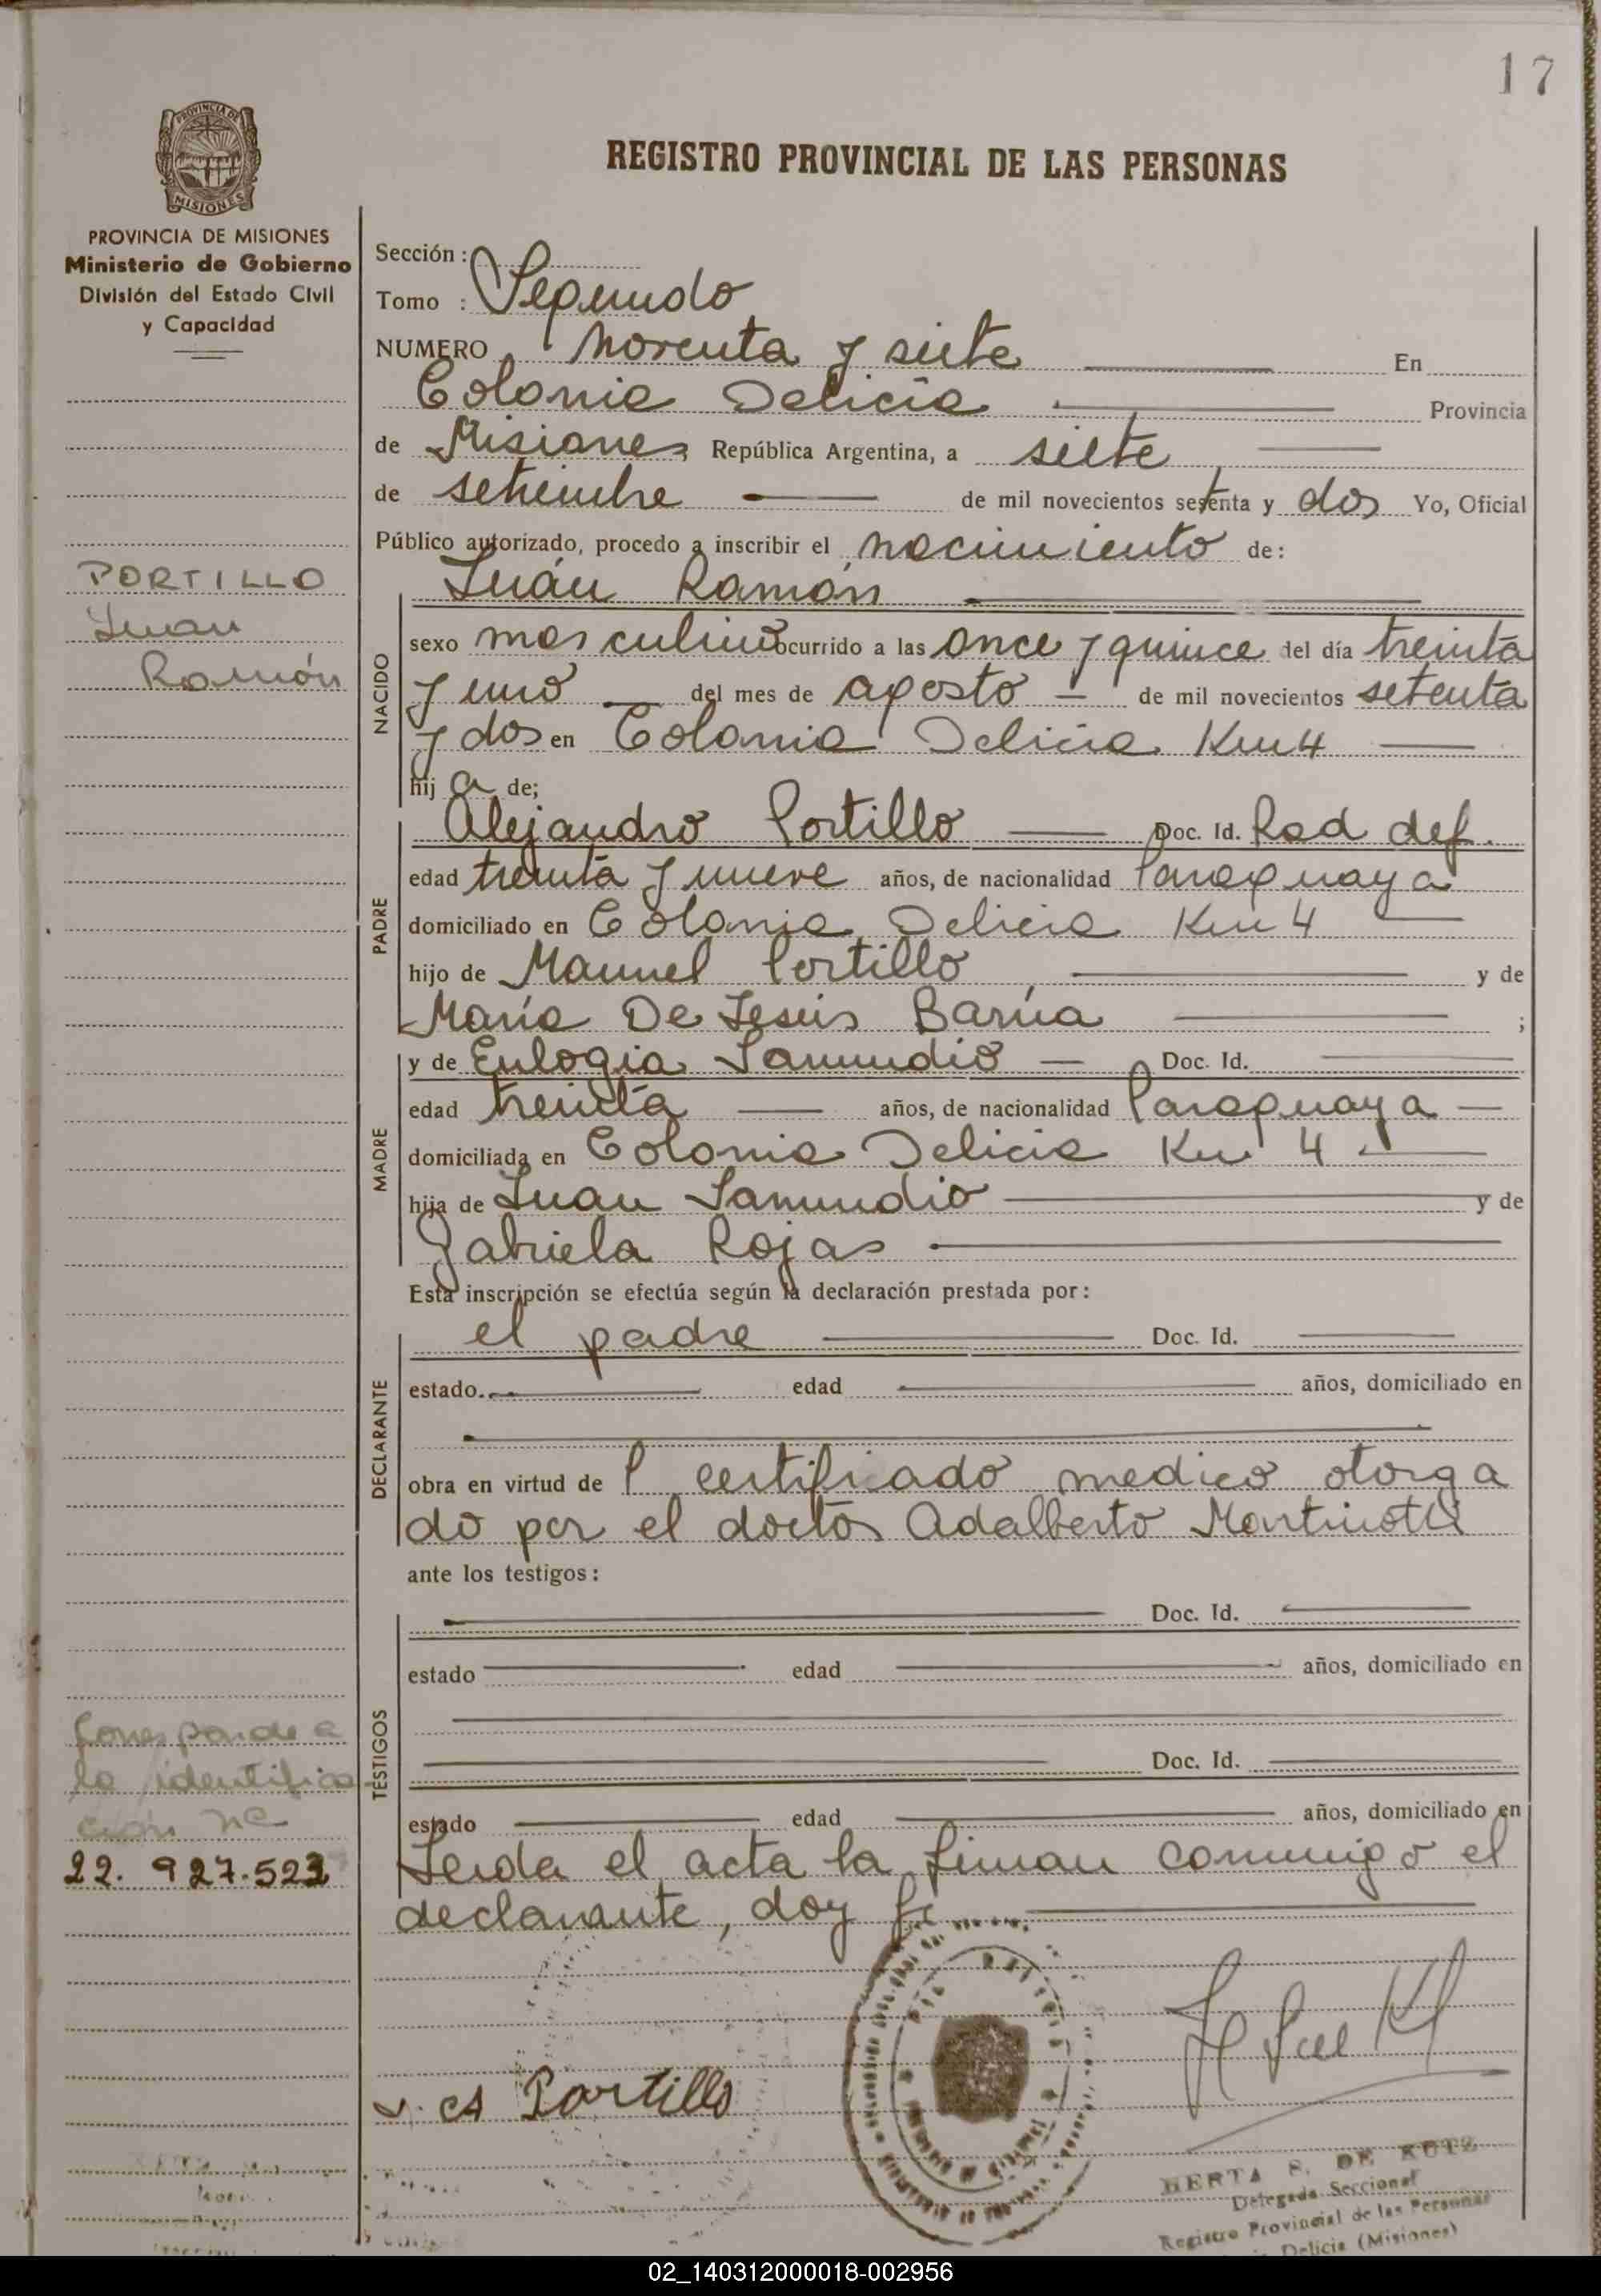 17
PROVINCIA DE
MISIONES
PROVINCIA DE MISIONES
Ministerio de Gobierno
División del Estado Civil
y Capacidad
PORTILLO
Juan
Ramón
Corresponde a
la identifica
ción Nº
22. 927.523
REGISTRO PROVINCIAL DE LAS PERSONAS
Sección :
Tomo : Segundo
NUMERO Noventa y siete En
Colonia Delicia Provincia
de Misiones República Argentina, a siete
de setiembre de mil novecientos setenta y dos Yo, Oficial
Público autorizado, procedo a inscribir el nacimiento de:
Juán Ramón
NACIDO
sexo masculino ocurrido a las once y quince del día treinta
y uno del mes de agosto de mil novecientos setenta
y dos en Colonia Delicia Km 4
hij o de;
PADRE
Alejandro Portillo Doc. Id. Rad def.
edad treinta y nueve años, de nacionalidad Paraguaya
domiciliado en Colonia Delicia Km 4
hijo de Manuel Portillo y de
María De Jesús Barúa ;
MADRE
y de Eulogia Samudio Doc. Id.
edad treinta años, de nacionalidad Paraguaya
domiciliada en Colonia Delicia Km 4
hija de Juan Samudio y de
Gabriela Rojas
Esta inscripción se efectúa según la declaración prestada por:
DECLARANTE
el padre Doc. Id.
estado. edad años, domiciliado en
obra en virtud de l certificado medico otorga
do por el doctor Adalberto Martinotti
ante los testigos:
TESTIGOS
Doc. Id.
estado edad años, domiciliado en
Doc. Id.
estado edad años, domiciliado en
Leida el acta la firman conmigo el
declarante, doy fé
Portillo
HERTA S. DE KUTZ
Delegada Seccional
Registro Provincial de las Personas
Delicia (Misiones)
02_140312000018-002956